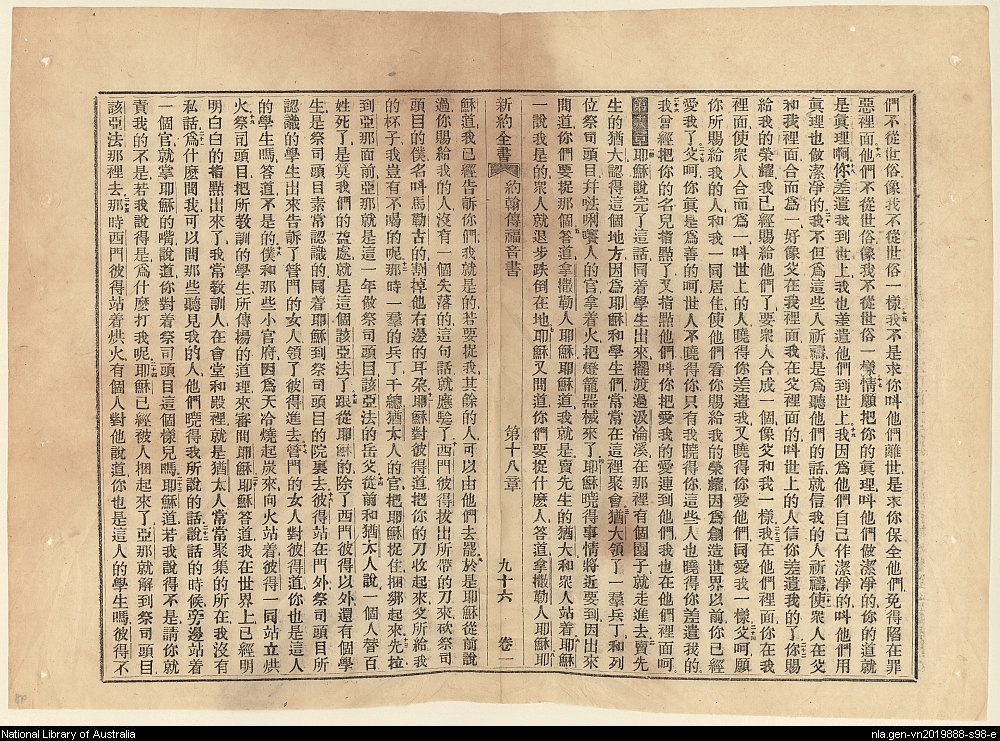 們不從世俗像我不從世俗一樣我不是求你呌他們離世是求你保全他們免得陷在罪
惡裡面他們不從世俗像我不從世俗一樣情願把你的眞理呌他們做潔凈的你的道就
是眞理啊你差遣我到世上我也差遣他們到世上我因爲他們自己作潔凈的呌他們用
眞理也做潔凈的我不但爲這些人祈禱是爲聽他們的話就信我的人祈禱使衆人在父
和我裡面合而爲一好像父在我裡面我在父裡面的呌世上的人信你差遣我的了你賜
給我的榮耀我已經賜給他們了要衆人合成一個像父和我一樣我在他們裡面你在我
裡面使衆人合而爲一呌世上的人曉得你差遣我又曉得你愛他們同愛我一樣父呵願
你所賜給我的人和我一同居住使他們看你賜給我的榮耀因爲創造世界以前你已經
愛我了父呵你眞是爲善的呵世人不曉得你只有我曉得你這些人也曉得你差遣我的
我曾經把你的名兒指點了又指點他們呌你把愛我的愛連到他們我也在他們裡面呵
耶穌說完了這話同着學生出來擺渡過汲淪溪在那裡有個園子就走進去賣先
生的猶大認得這個地方因爲耶穌和學生們常常在這裡聚會猶大領了一羣兵丁和列
位祭司頭目幷𠵽唎嚽人的官拿着火把燈籠器械來了耶穌曉得事情將近要到因出來
問道你們要捉那個答道拿撒勒人耶穌耶穌道我就是賣先生的猶大和衆人站着耶穌
一說我是的衆人就退步跌倒在地耶穌又問道你們要捉什麼人答道拿撒勒人耶穌耶
新約全書 約翰傳福音書 第十八章 九十六 卷一
穌道我已經告訴你們我就是的若要捉我其餘的人可以由他們去罷於是耶穌從前說
過你賜給我的人沒有一個失落的這句話就應驗了西門彼得拔出所帶的刀來砍祭司
頭目的僕名呌馬勒古的割掉他右邊的耳朶耶穌對彼得道把你的刀收起來父所給我
的杯子我豈有不喝的呢那時一羣的兵丁千總猶太人的官把耶穌捉住捆綁起來先拉
到亞那面前亞那就是這一年做祭司頭目該亞法的岳父從前和猶太人說一個人替百
姓死了是莫我們的益處就是這個該亞法了跟從耶穌的除了西門彼得以外還有個學
生是祭司頭目素常認識的同着耶穌到祭司頭目的院裏去彼得站在門外祭司頭目所
認識的學生出來告訴了管門的女人領了彼得進去管門的女人對彼得道你也是這人
的學生嗎答道不是的僕和那些小官府因爲天冷燒起炭來向火站着彼得一同站立烘
火祭司頭目把所教訓的學生所傳揚的道理來審問耶穌耶穌答道我在世界上已經明
明白白的指點出來了我常教訓人在會堂和殿裡就是猶太人常常聚集的所在我沒有
私話爲什麼問我可以問那些聽見我的人他們曉得我所說的話說話的時候旁邊站着
一個官就掌耶穌的嘴說道你對着祭司頭目這個樣兒嗎耶穌道若我說得不是請你就
責我的不是若我說得是爲什麼打我呢耶穌已經被人捆起來了亞那就解到祭司頭目
該亞法那裡去那時西門彼得站着烘火有個人對他說道你也是這人的學生嗎彼得不
National Library of Australia
nla.gen-vn2019888-s98-e